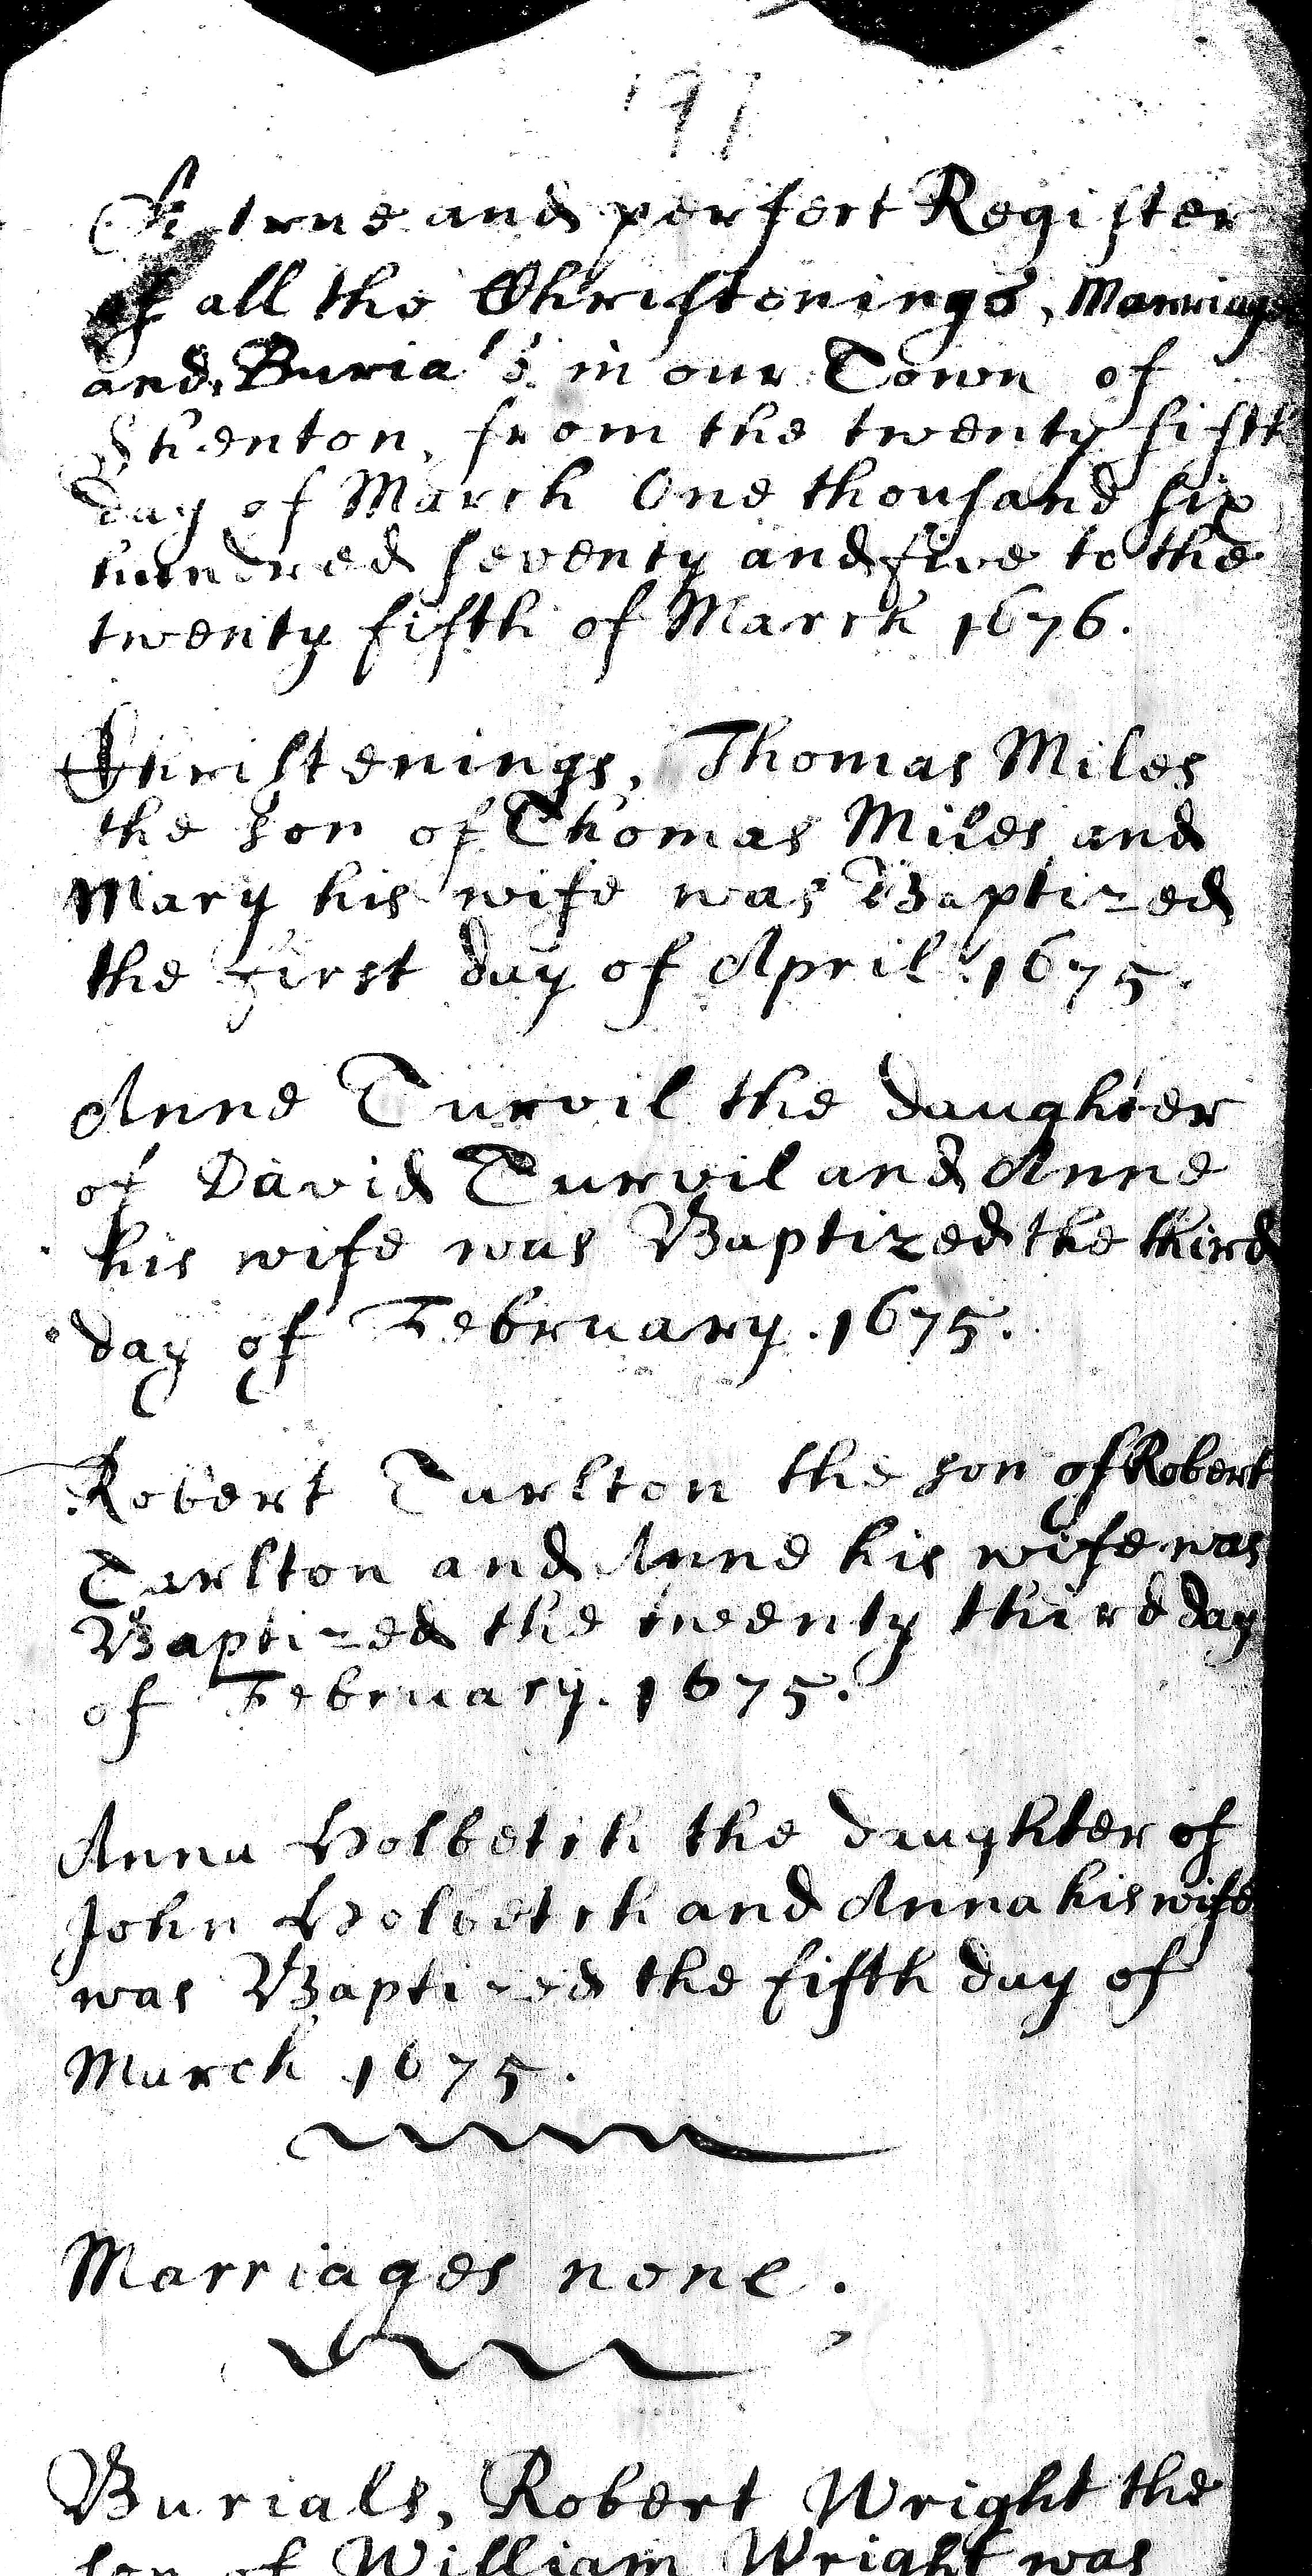 197
A true and perfect Register
of all the Christenings, Marriages
and Burials in our Town of
Shenton, from the twenty fifth
day of March One thousand six
hundred seventy and five to the
twenty fifth of March 1676.
Christenings, Thomas Miles
the son of Thomas Miles and
Mary his wife was Baptized
the first day of April. 1675.
Anne Turvil the daughter
of David Turvil and Anne
his wife was Baptized the third
day of February. 1675.
Robert Tarlton the son of Robert
Tarlton and Anne his wife was
Baptized the twenty third day
of February. 1675.
Anna Holbetch the daughter of
John Holbetch and Anna his wife
was Baptized the fifth day of
March 1675.
Marriages none.
Burials, Robert Wright the
son of William Wright was